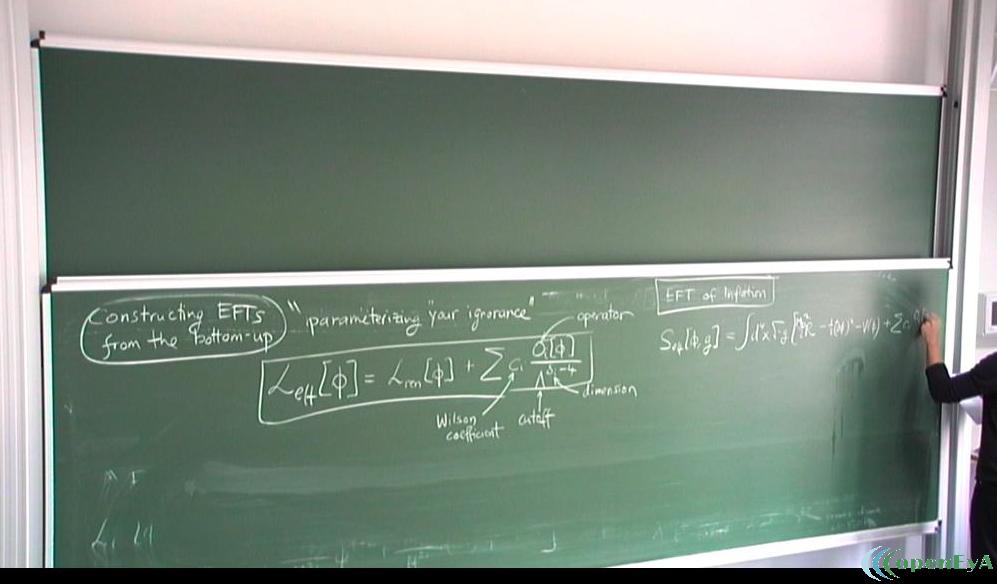 Constructing EFTs
from the bottom-up
"parameterizing your ignorance"
operator
L_eff[ϕ] = L_ren[ϕ] + Σ c_i O_i[ϕ] / Λ^{δ_i-4}
dimension
Wilson
coefficient
cutoff
EFT of Inflation
S_eff[ϕ,g] = ∫d⁴x √-g [
openEyA